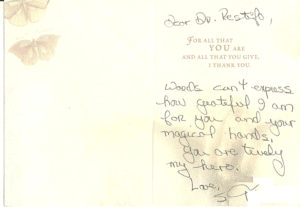 Dear Dr. Restifo,
FOR ALL THAT
YOU ARE
AND ALL THAT YOU GIVE,
I THANK YOU.
Words can't express
how grateful I am
for you and your
magical hands.
You are truely
my hero.
Love,